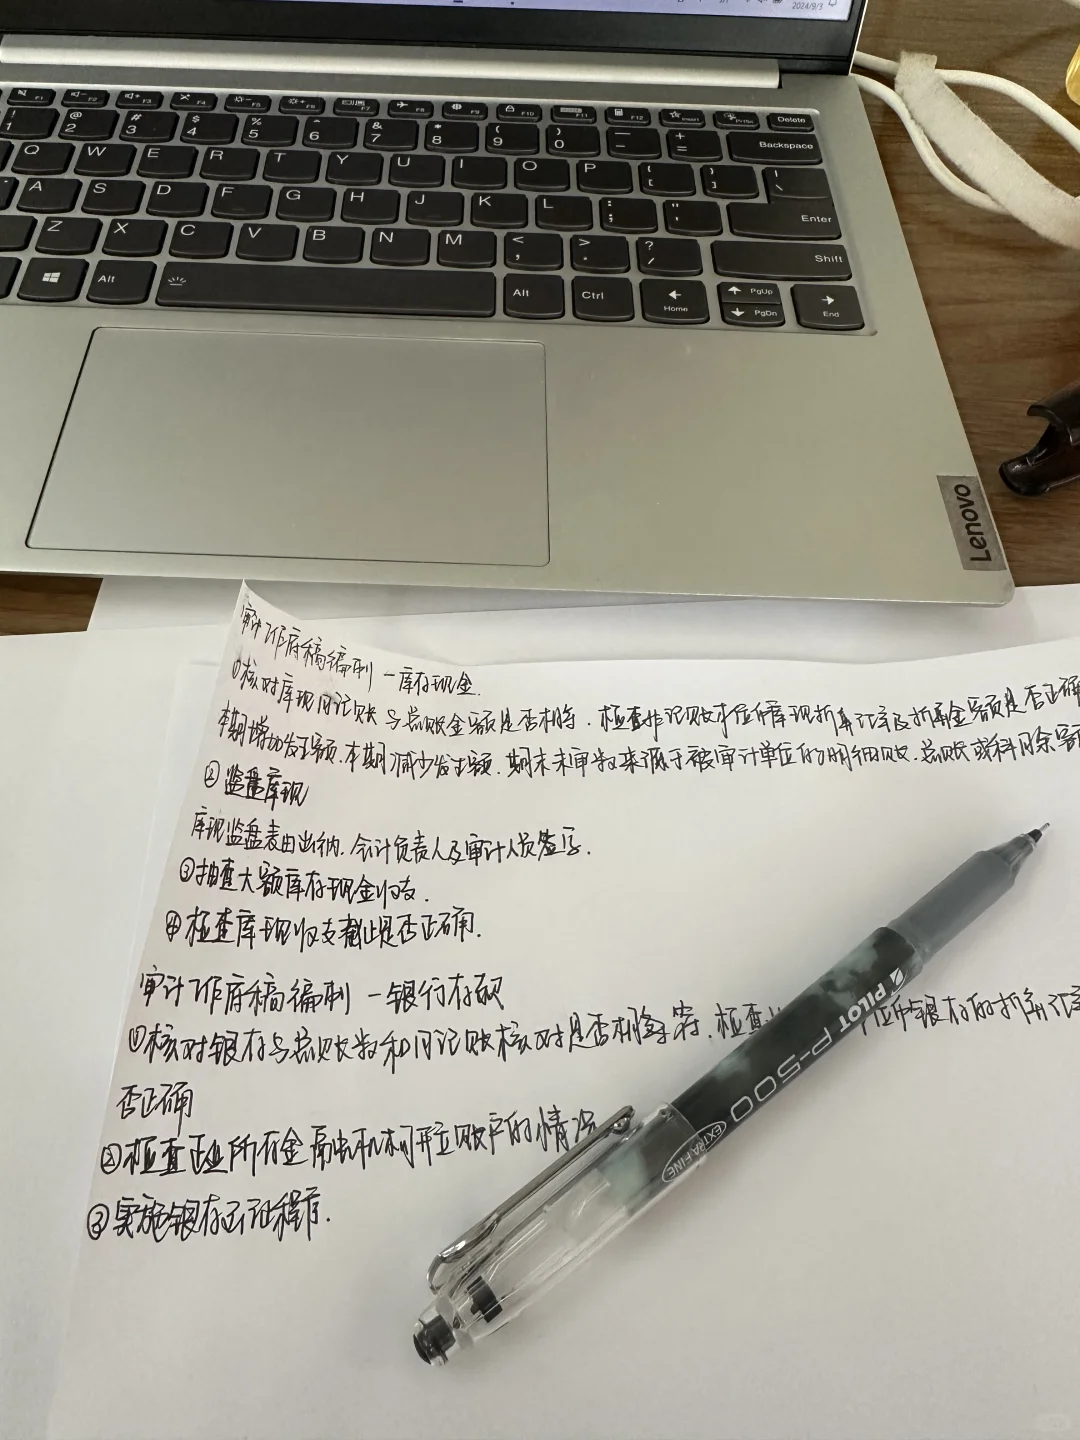 2024/9/3
F1 F2 F3 F4 F5 F6 F7 F8 F9 F10 F11 F12 Insert PrtSc Delete
! 1 @ 2 # 3 $ 4 % 5 ^ 6 & 7 * 8 ( 9 ) 0 — - + = Backspace
Q W E R T Y U I O P { [ } ] | \
A S D F G H J K L : ; " ' Enter
Z X C V B N M < , > . ? / Shift
Alt Alt Ctrl ← Home ↑ PgUp ↓ PgDn → End
Lenovo
审计工作底稿编制 — 库存现金.
①核对库现日记账与总账金额是否相等. 检查非记账本位币库现折算汇率及折算金额是否正确
本期增加发生额.本期减少发生额.期末未审数来源于被审计单位的明细账.总账或科目余额
② 监盘库现
库现监盘表由出纳.会计负责人及审计人员签字.
③抽查大额库存现金收支.
④检查库现收支截止是否正确.
审计工作底稿编制 — 银行存款
①核对银存与总账数和日记账核对是否相等 符.检查 位币银存的折算汇率
否正确
②检查企业所在金融机构开立账户的情况
③实施银存函证程序.
PILOT P-500
EXTRA FINE